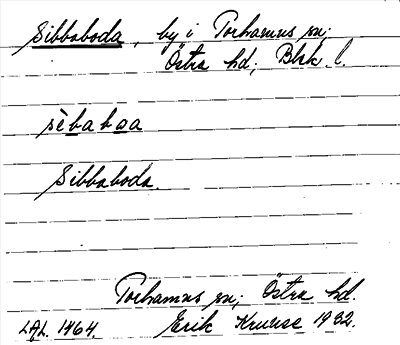 Sibbaboda, by i Torhamns sn;
Östra hd; Blek. l.
sèbabǝa
Sibbaboda.
Torhamns sn; Östra hd.
LAL. 1464. Erik Kruuse 1932.